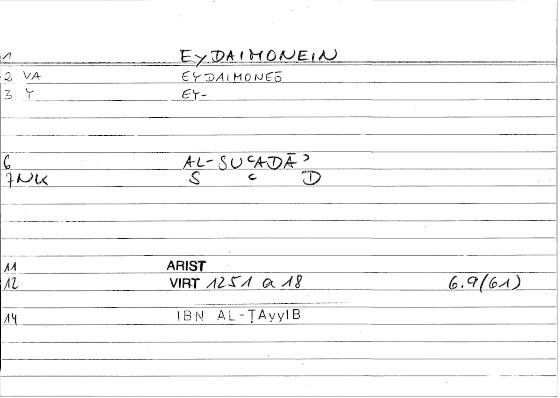 1 EyDAIMONEIN
2 VA EYDAIMONEŌ
3 Y EY-
6 AL-SUʿADĀʾ
7NK S ʿ D
11 ARIST
12 VIRT 1251 a 18 6.9(61)
14 IBN AL-ṬAyyIB